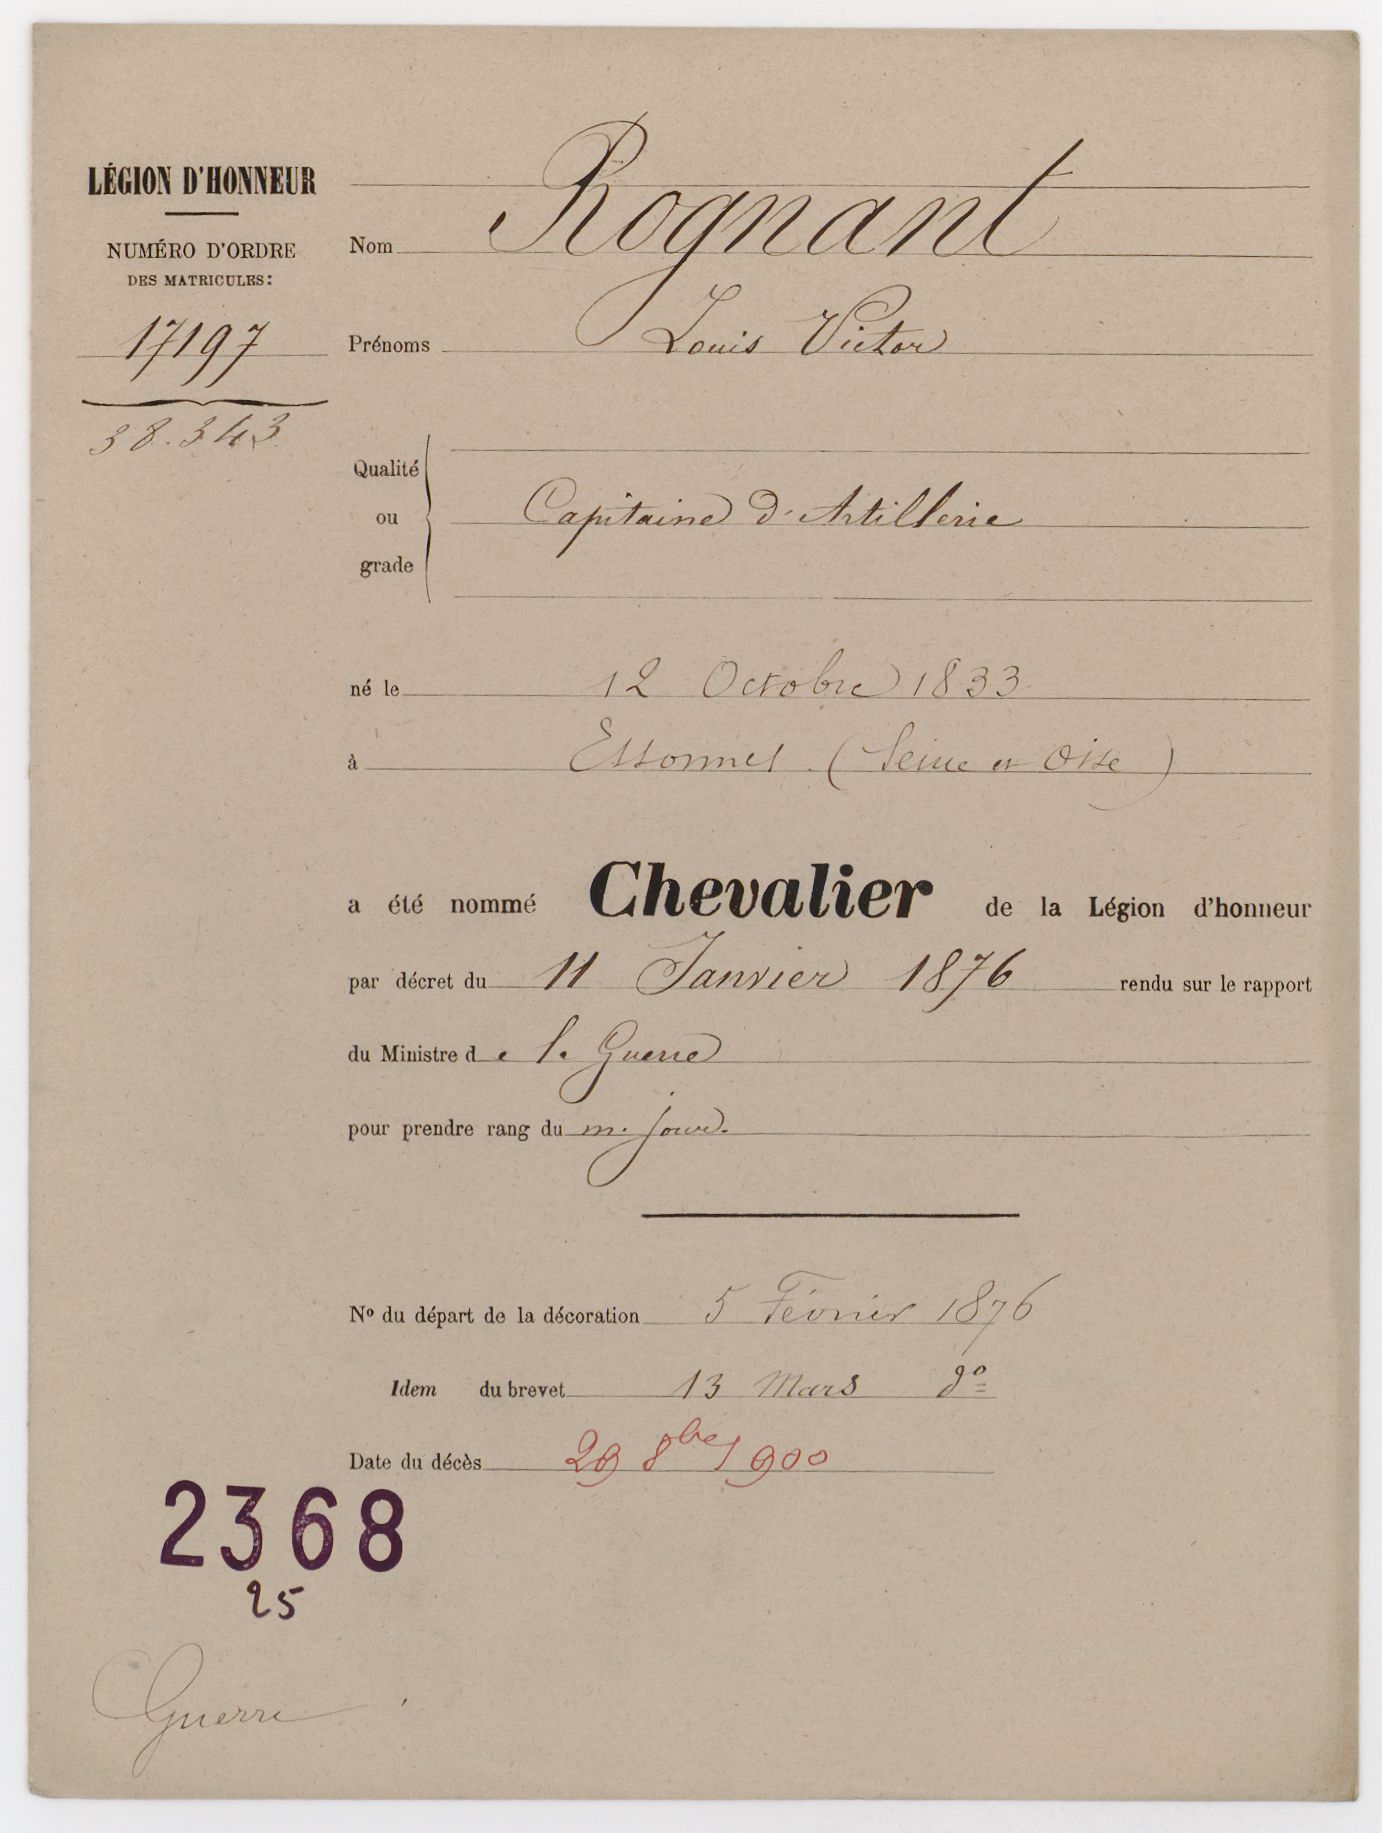 LÉGION D'HONNEUR
NUMÉRO D'ORDRE
DES MATRICULES:
17197
38.343
Nom Rognant
Prénoms Louis Victor
Qualité
ou Capitaine d'Artillerie
grade
né le 12 Octobre 1833
à Essonnes (Seine et Oise)
a été nommé Chevalier de la Légion d'honneur
par décret du 11 Janvier 1876 rendu sur le rapport
du Ministre de la Guerre
pour prendre rang du m. jour.
Nº du départ de la décoration 5 Février 1876
Idem du brevet 13 Mars dº
Date du décès 29 8bre 1900
2368
25
Guerre